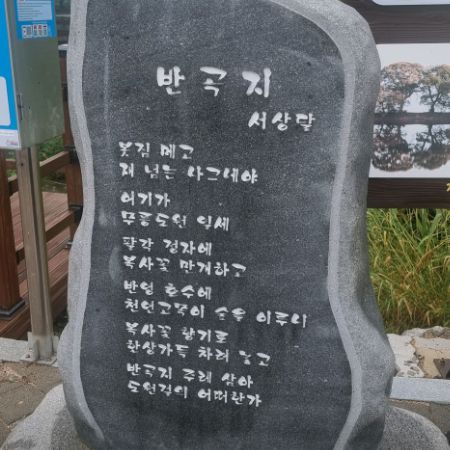 반곡지
서상달
봇짐 메고
재 넘는 나그네야
여기가
무릉도원 일세
팔각 정자에
복사꽃 만개하고
반월 호수에
천년고목이 숲을 이루니
복사꽃 향기로
한상가득 차려 놓고
반곡지 주례 삼아
도원결의 어떠한가